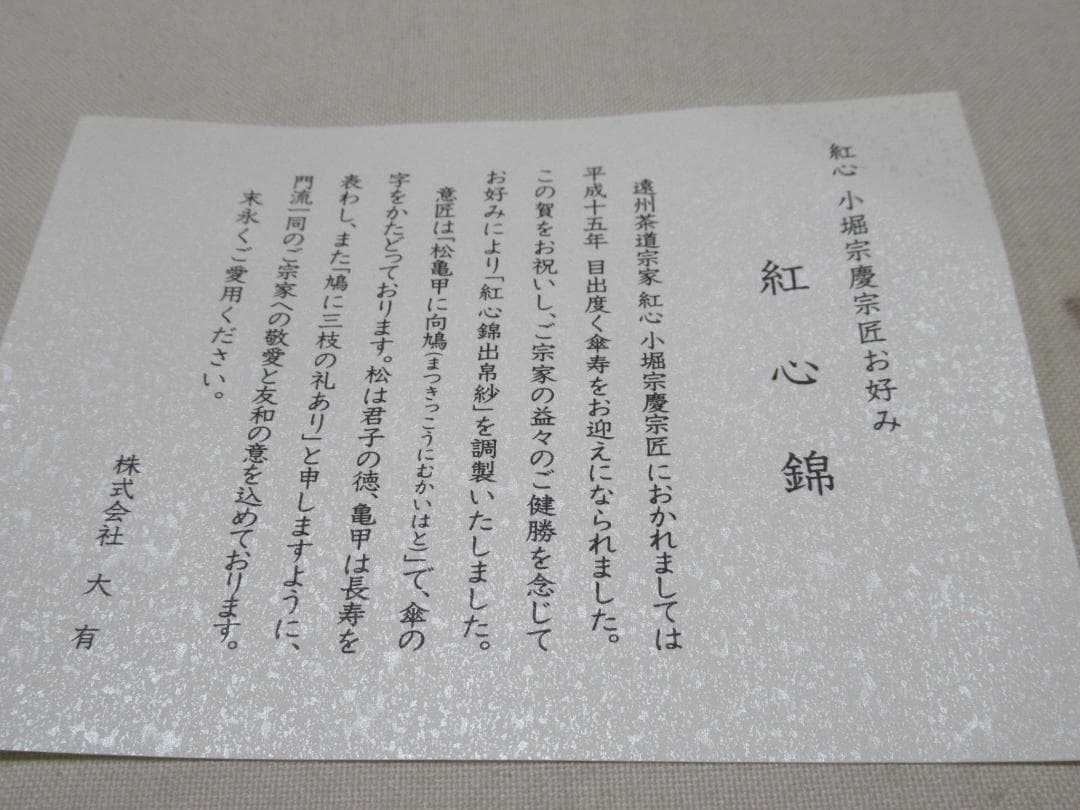 紅心 小堀宗慶宗匠お好み
紅心錦
遠州茶道宗家 紅心 小堀宗慶宗匠におかれましては
平成十五年 目出度く傘寿をお迎えになられました。
この賀をお祝いし、ご宗家の益々のご健勝を念じて
お好みにより「紅心錦出帛紗」を調製いたしました。
意匠は「松亀甲に向鳩(まつきっこうにむかいはと)」で、傘の
字をかたどっております。松は君子の徳、亀甲は長寿を
表わし、また「鳩に三枝の礼あり」と申しますように、
門流一同のご宗家への敬愛と友和の意を込めております。
末永くご愛用ください。
株式会社 大有